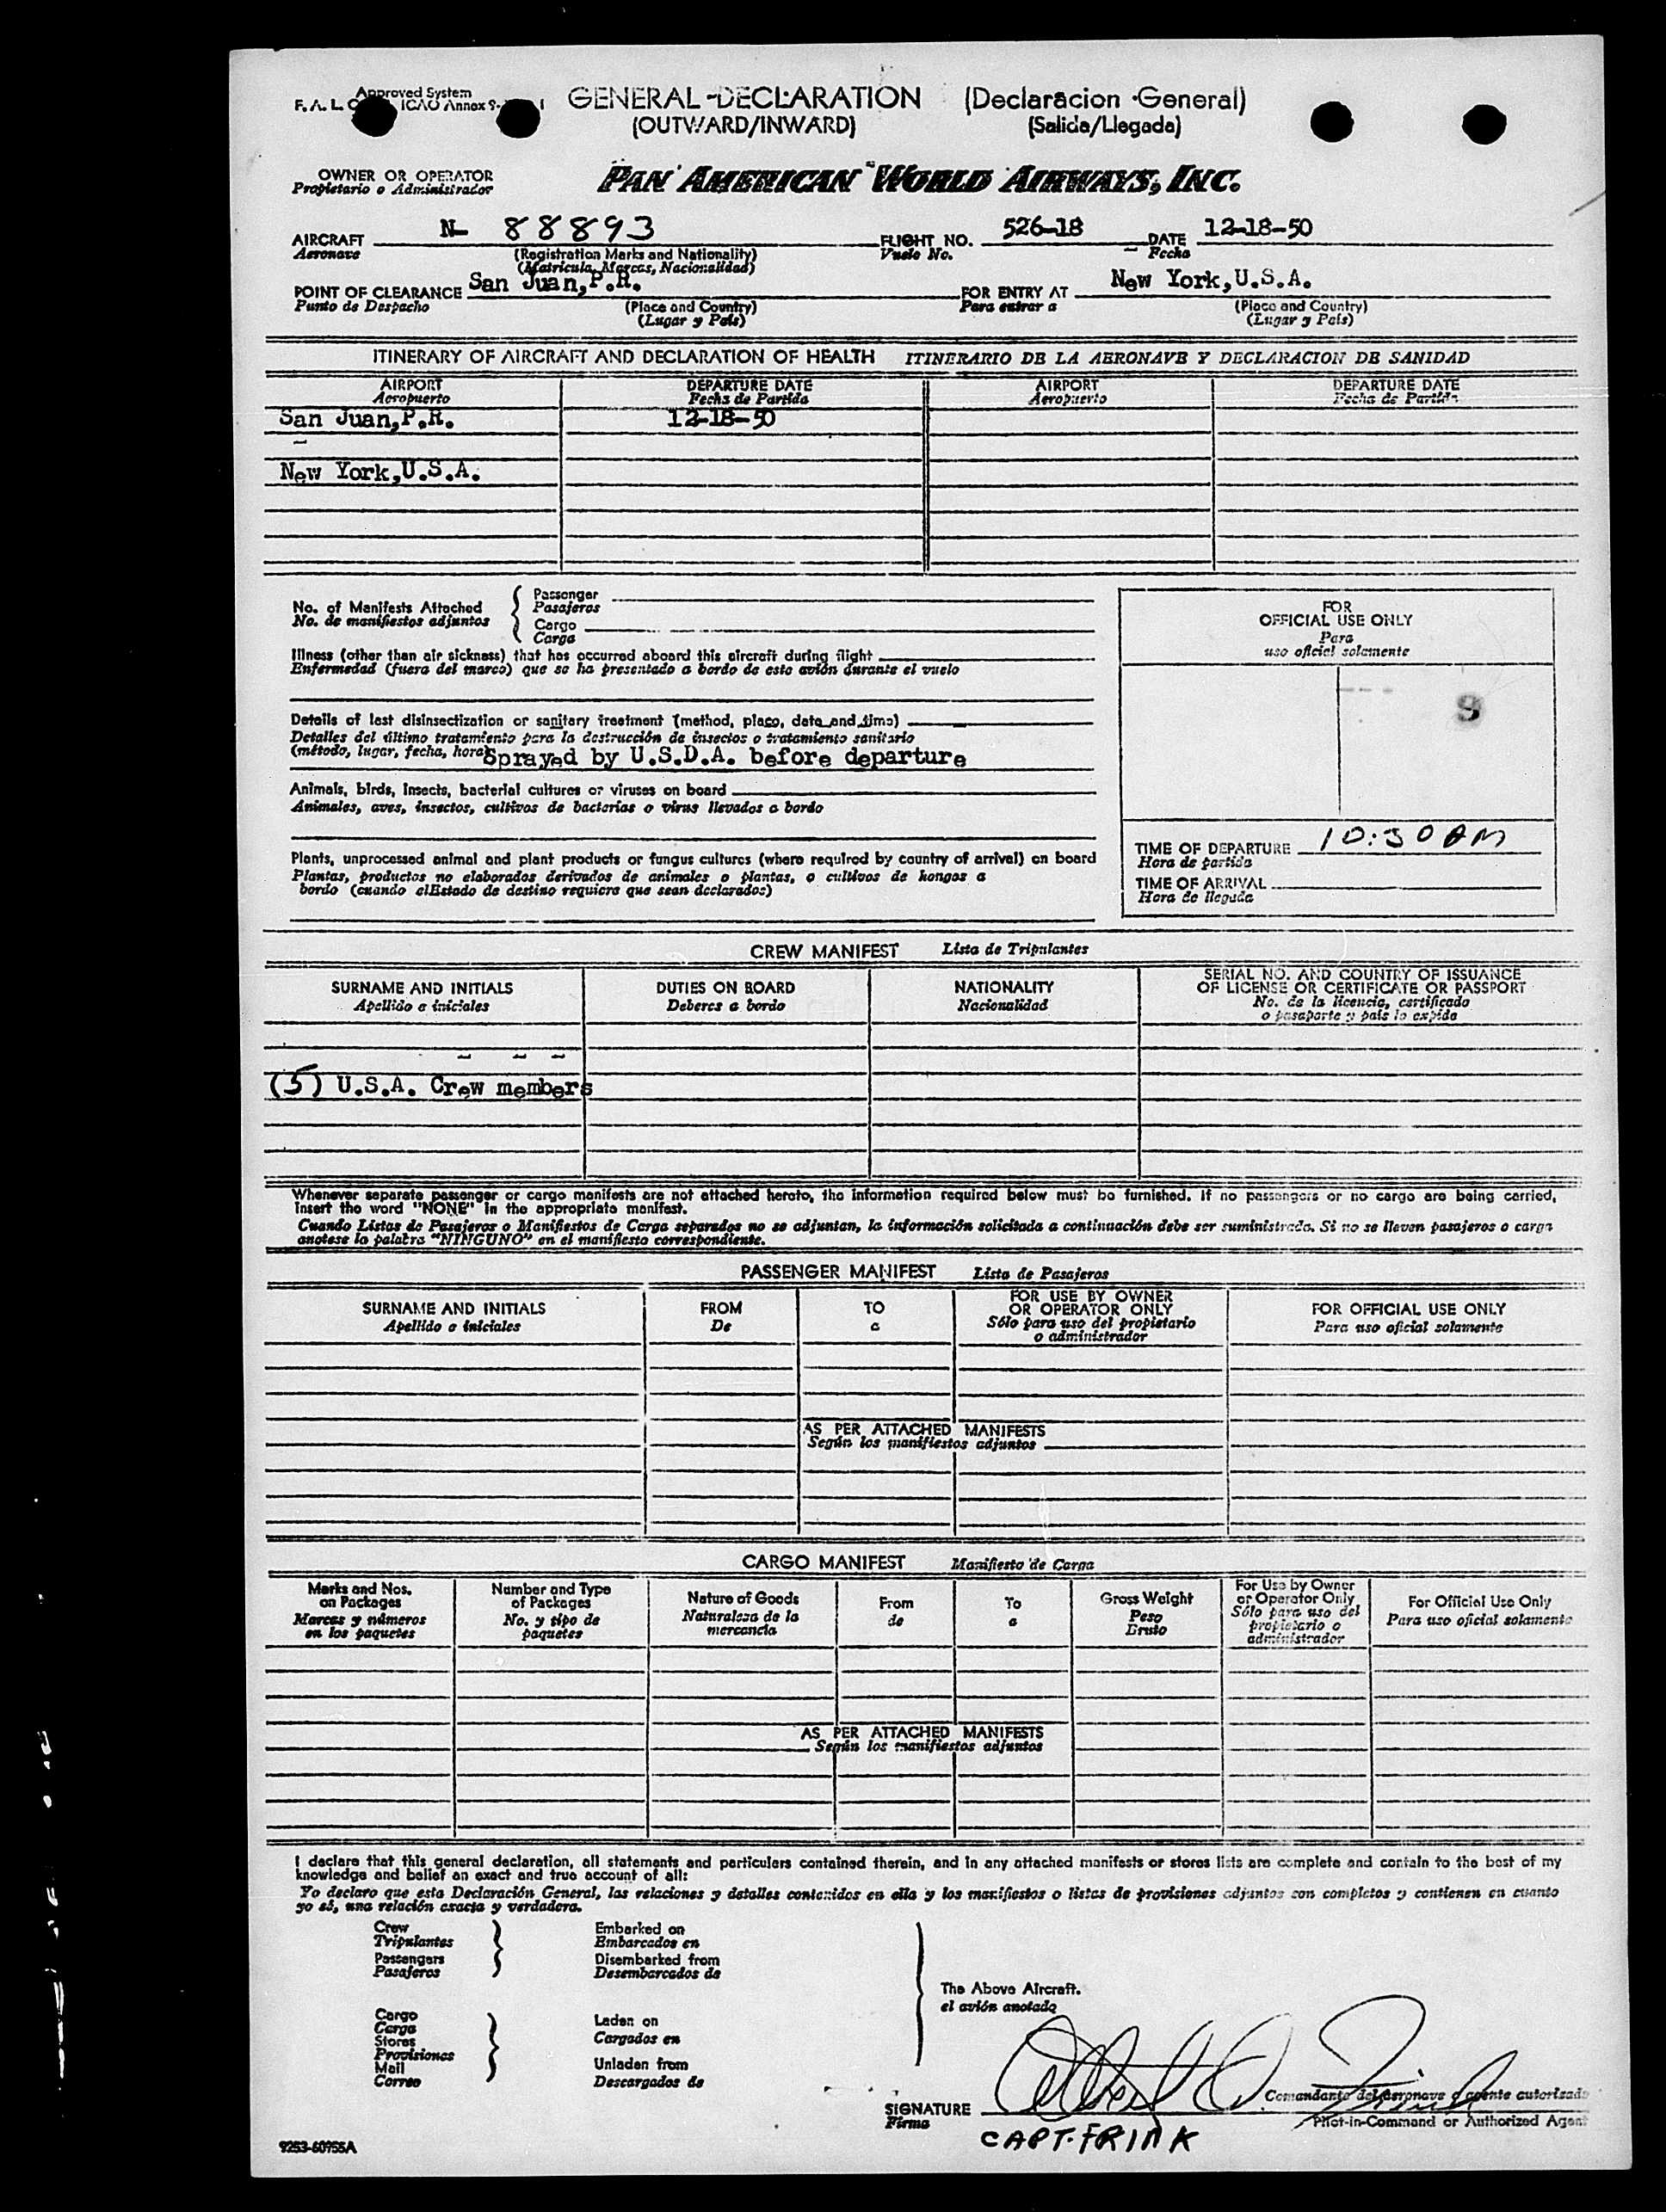 Approved System
F. A. L. ICAO Annex 9-
GENERAL DECLARATION (Declaracion General)
(OUTWARD/INWARD) (Salida/Llegada)
OWNER OR OPERATOR
Propietario o Administrador
PAN AMERICAN WORLD AIRWAYS, INC.
AIRCRAFT N- 88893 FLIGHT NO. 526-18 DATE 12-18-50
Aeronave (Registration Marks and Nationality) Vuelo No. Fecha
(Matricula, Marcas, Nacionalidad)
POINT OF CLEARANCE San Juan, P.R. FOR ENTRY AT New York, U.S.A.
Punto de Despacho (Place and Country) Para entrar a (Place and Country)
(Lugar y País) (Lugar y País)
ITINERARY OF AIRCRAFT AND DECLARATION OF HEALTH ITINERARIO DE LA AERONAVE Y DECLARACION DE SANIDAD
AIRPORT DEPARTURE DATE AIRPORT DEPARTURE DATE
Aeropuerto Fecha de Partida Aeropuerto Fecha de Partida
San Juan, P.R. 12-18-50
New York, U.S.A.
No. of Manifests Attached
No. de manifiestos adjuntos
Passenger
Pasajeros
Cargo
Carga
Illness (other than air sickness) that has occurred aboard this aircraft during flight
Enfermedad (fuera del mareo) que se ha presentado a bordo de este avión durante el vuelo
Details of last disinsectization or sanitary treatment (method, place, date and time)
Detalles del último tratamiento para la destrucción de insectos o tratamiento sanitario
(método, lugar, fecha, hora) Sprayed by U.S.D.A. before departure
Animals, birds, insects, bacterial cultures or viruses on board
Animales, aves, insectos, cultivos de bacterias o virus llevados a bordo
Plants, unprocessed animal and plant products or fungus cultures (where required by country of arrival) on board
Plantas, productos no elaborados derivados de animales o plantas, o cultivos de hongos a
bordo (cuando elEstado de destino requiere que sean declarados)
FOR
OFFICIAL USE ONLY
Para
uso oficial solamente
9
TIME OF DEPARTURE 10:30 AM
Hora de partida
TIME OF ARRIVAL
Hora de llegada
CREW MANIFEST Lista de Tripulantes
SURNAME AND INITIALS DUTIES ON BOARD NATIONALITY SERIAL NO. AND COUNTRY OF ISSUANCE
OF LICENSE OR CERTIFICATE OR PASSPORT
Apellido e iniciales Deberes a bordo Nacionalidad No. de la licencia, certificado
o pasaporte y país lo expida
(5) U.S.A. Crew members
Whenever separate passenger or cargo manifests are not attached hereto, the information required below must be furnished. If no passengers or no cargo are being carried,
insert the word "NONE" in the appropriate manifest.
Cuando Listas de Pasajeros o Manifiestos de Carga separados no se adjuntan, la información solicitada a continuación debe ser suministrada. Si no se lleven pasajeros o carga
anotese la palabra "NINGUNO" en el manifiesto correspondiente.
PASSENGER MANIFEST Lista de Pasajeros
SURNAME AND INITIALS FROM TO FOR USE BY OWNER OR OPERATOR ONLY FOR OFFICIAL USE ONLY
Apellido e iniciales De a Sólo para uso del propietario o administrador Para uso oficial solamente
AS PER ATTACHED MANIFESTS
Según los manifiestos adjuntos
CARGO MANIFEST Manifiesto de Carga
Marks and Nos. on Packages
Marcas y números en los paquetes
Number and Type of Packages
No. y tipo de paquetes
Nature of Goods
Naturaleza de la mercancía
From
de
To
a
Gross Weight
Peso Bruto
For Use by Owner or Operator Only
Sólo para uso del propietario o administrador
For Official Use Only
Para uso oficial solamente
AS PER ATTACHED MANIFESTS
Según los manifiestos adjuntos
I declare that this general declaration, all statements and particulars contained therein, and in any attached manifests or stores lists are complete and contain to the best of my
knowledge and belief an exact and true account of all:
Yo declaro que esta Declaración General, las relaciones y detalles contenidos en ella y los manifiestos o listas de provisiones adjuntos son completos y contienen en cuanto
yo sé, una relación exacta y verdadera.
Crew
Tripulantes
Passengers
Pasajeros
Embarked on
Embarcados en
Disembarked from
Desembarcados de
Cargo
Carga
Stores
Provisiones
Mail
Correo
Laden on
Cargados en
Unladen from
Descargados de
The Above Aircraft.
el avión anotado
SIGNATURE
Firma
Comandante del Aeronave o agente autorizado
Pilot-in-Command or Authorized Agent
CAPT. FRINK
9253-60955A